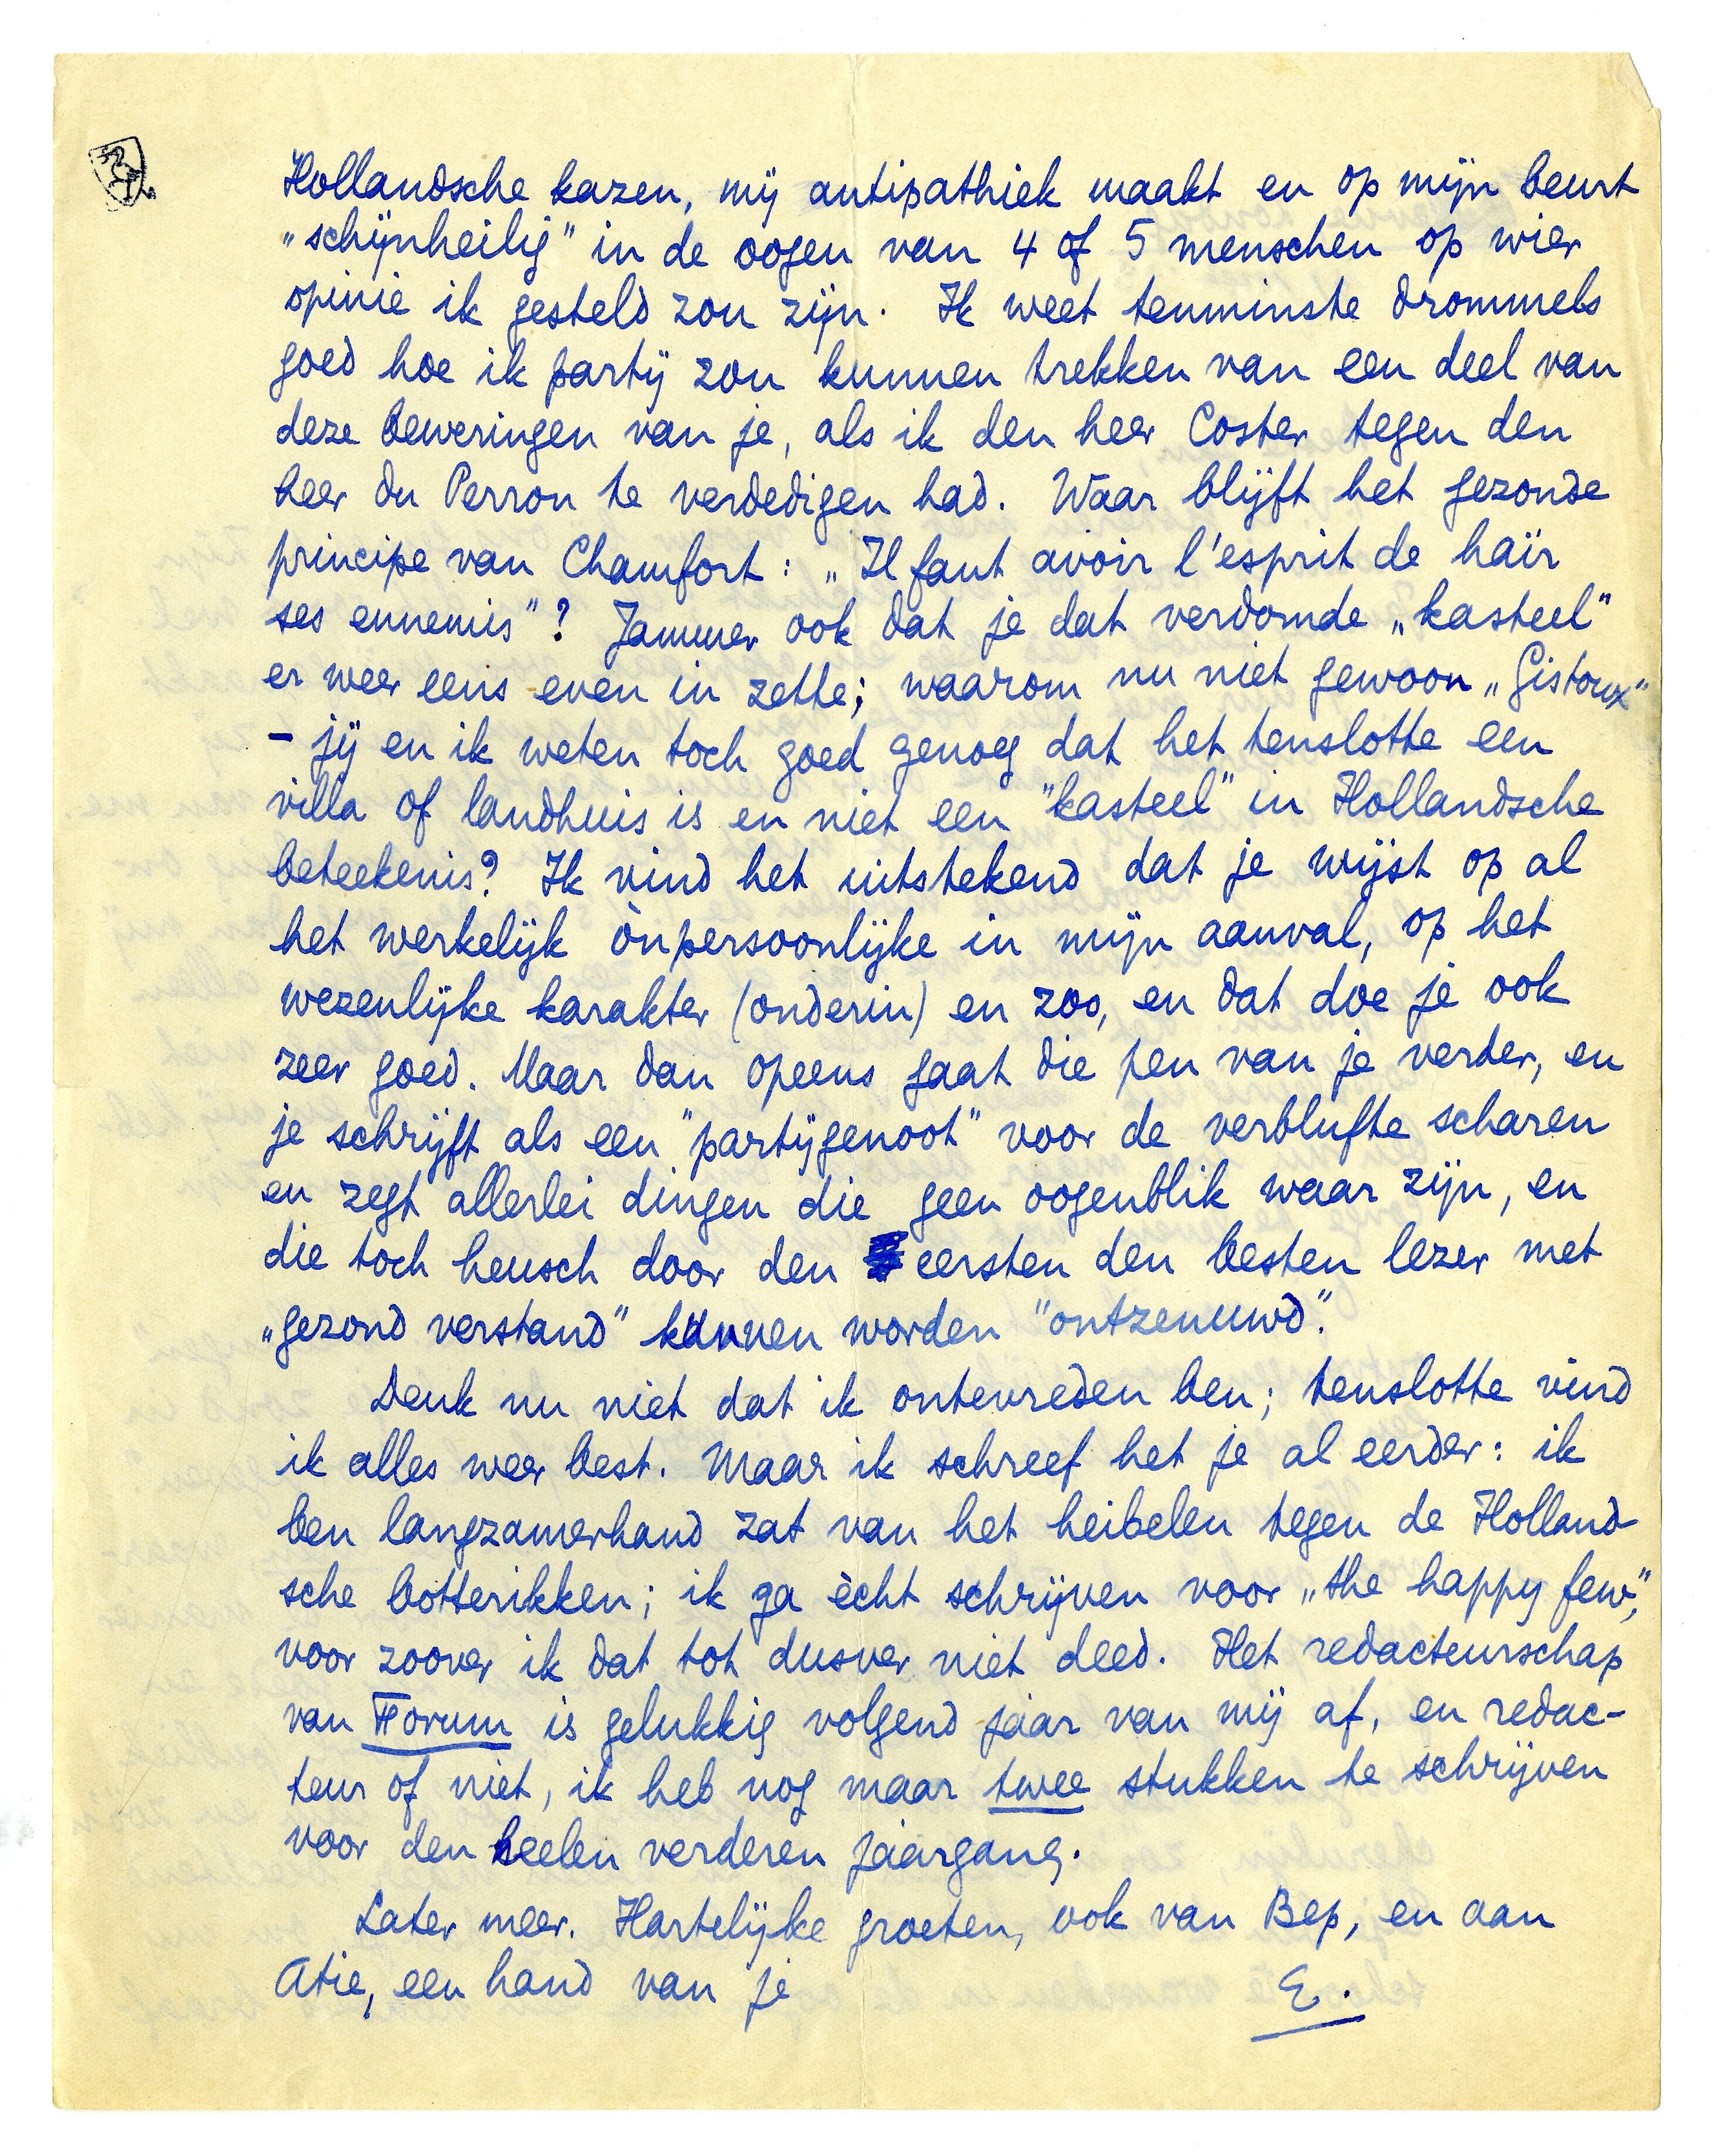 Hollandsche kazen, mij antipathiek maakt en op mijn beurt
„schijnheilig” in de oogen van 4 of 5 menschen op wier
opinie ik gesteld zou zijn. Ik weet tenminste drommels
goed hoe ik partij zou kunnen trekken van een deel van
deze beweringen van je, als ik den heer Coster tegen den
heer du Perron te verdedigen had. Waar blijft het gezonde
principe van Chamfort: „Il faut avoir l'esprit de haïr
ses ennemis”? Jammer ook dat je dat verdomde „kasteel”
er weer eens even in zette; waarom nu niet gewoon „Gistoux”
– jij en ik weten toch goed genoeg dat het tenslotte een
villa of landhuis is en niet een "kasteel" in Hollandsche
beteekenis? Ik vind het uitstekend dat je wijst op al
het werkelijk ònpersoonlijke in mijn aanval, op het
wezenlijke karakter (onderin) en zoo, en dat doe je ook
zeer goed. Maar dan opeens gaat die pen van je verder, en
je schrijft als een "partijgenoot" voor de verblufte scharen
en zegt allerlei dingen die geen oogenblik waar zijn, en
die toch heusch door den eersten den besten lezer met
„gezond verstand” kunnen worden "ontzenuwd".
Denk nu niet dat ik ontevreden ben; tenslotte vind
ik alles weer best. Maar ik schreef het je al eerder: ik
ben langzamerhand zat van het heibelen tegen de Holland-
sche botterikken; ik ga ècht schrijven voor „the happy few”,
voor zoover ik dat tot dusver niet deed. Het redacteurschap
van Forum is gelukkig volgend jaar van mij af, en redac-
teur of niet, ik heb nog maar twee stukken te schrijven
voor den heelen verderen jaargang.
Later meer. Hartelijke groeten, ook van Bep, en aan
Atie, een hand van je E.